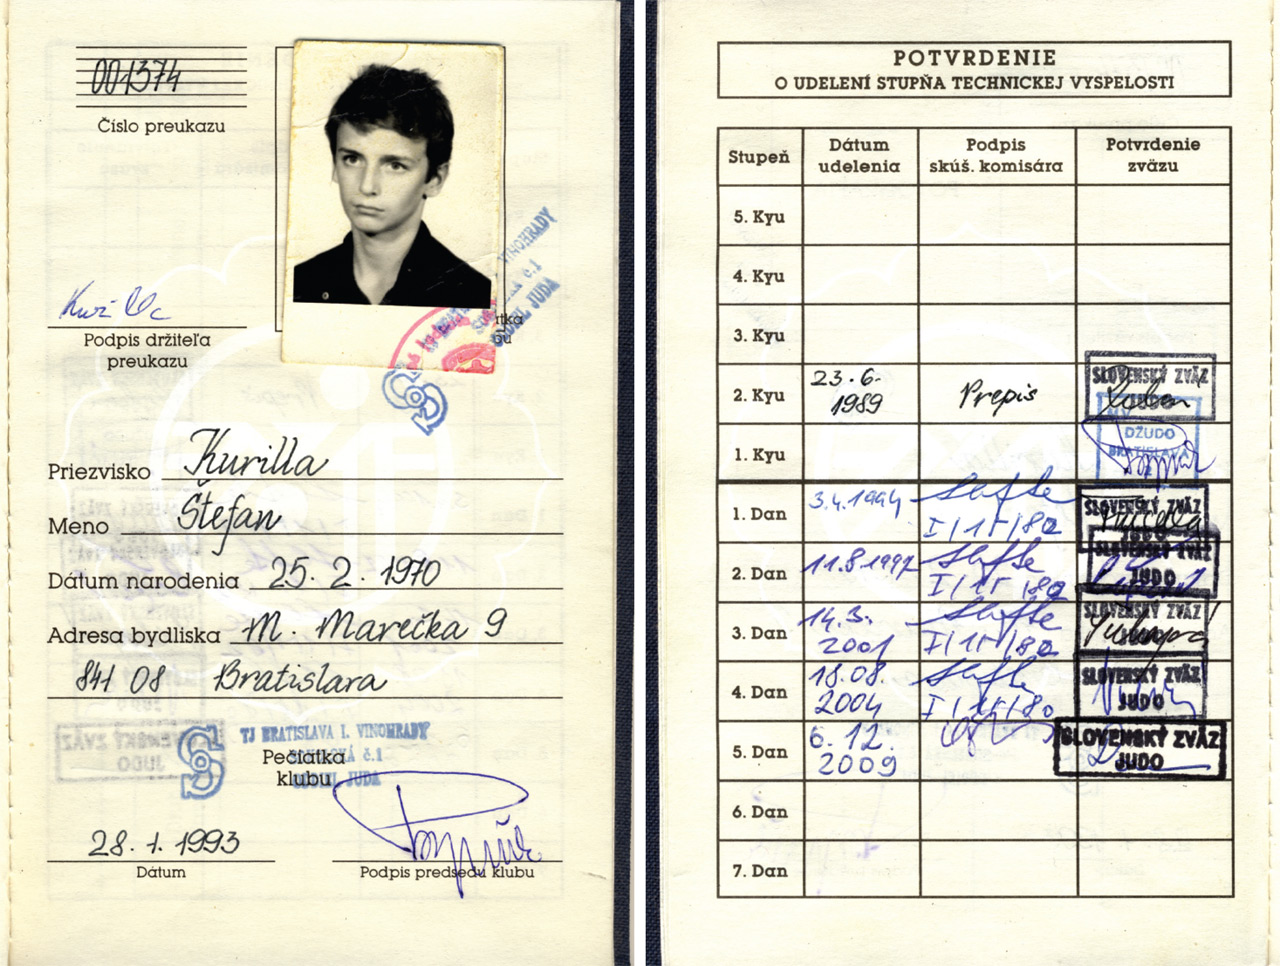 001374
Číslo preukazu
Podpis držiteľa
preukazu
VINOHRADY
č.1
ODDIEL JUDA
Priezvisko Kurilla
Meno Štefan
Dátum narodenia 25. 2. 1970
Adresa bydliska M. Marečka 9
841 08 Bratislava
TJ BRATISLAVA I. VINOHRADY
č.1
Pečiatka
klubu
JUDA
28. 1. 1993
Dátum
Podpis predsedu klubu
POTVRDENIE
O UDELENÍ STUPŇA TECHNICKEJ VYSPELOSTI
Stupeň Dátum udelenia Podpis skúš. komisára Potvrdenie zväzu
5. Kyu
4. Kyu
3. Kyu
2. Kyu 23. 6. 1989 Prepis SLOVENSKÝ ZVÄZ
1. Kyu DŽUDO BRATISLAVA
1. Dan 3.4.1994 I/15/82 SLOVENSKÝ ZVÄZ JUDO
2. Dan 11.8.1997 I/15/82 SLOVENSKÝ ZVÄZ JUDO
3. Dan 14.3. 2001 I/15/82 SLOVENSKÝ ZVÄZ
4. Dan 18.08. 2004 I/15/82 SLOVENSKÝ ZVÄZ JUDO
5. Dan 6. 12. 2009 SLOVENSKÝ ZVÄZ JUDO
6. Dan
7. Dan